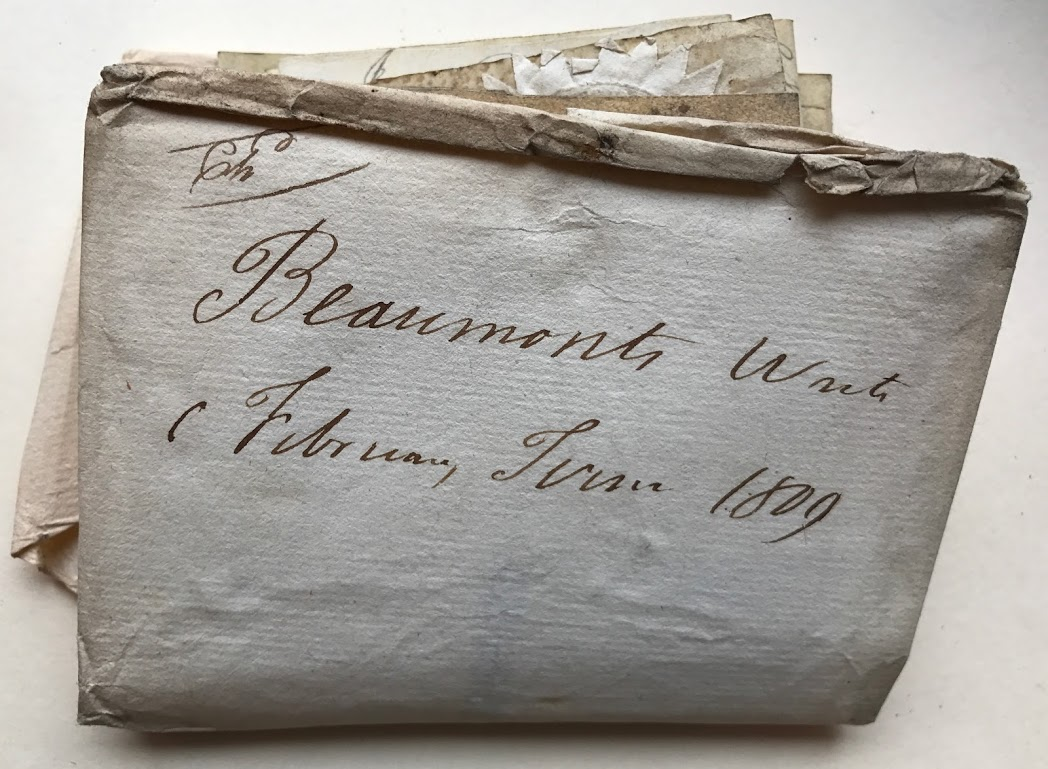 Beaumonts Writs
February Term 1809